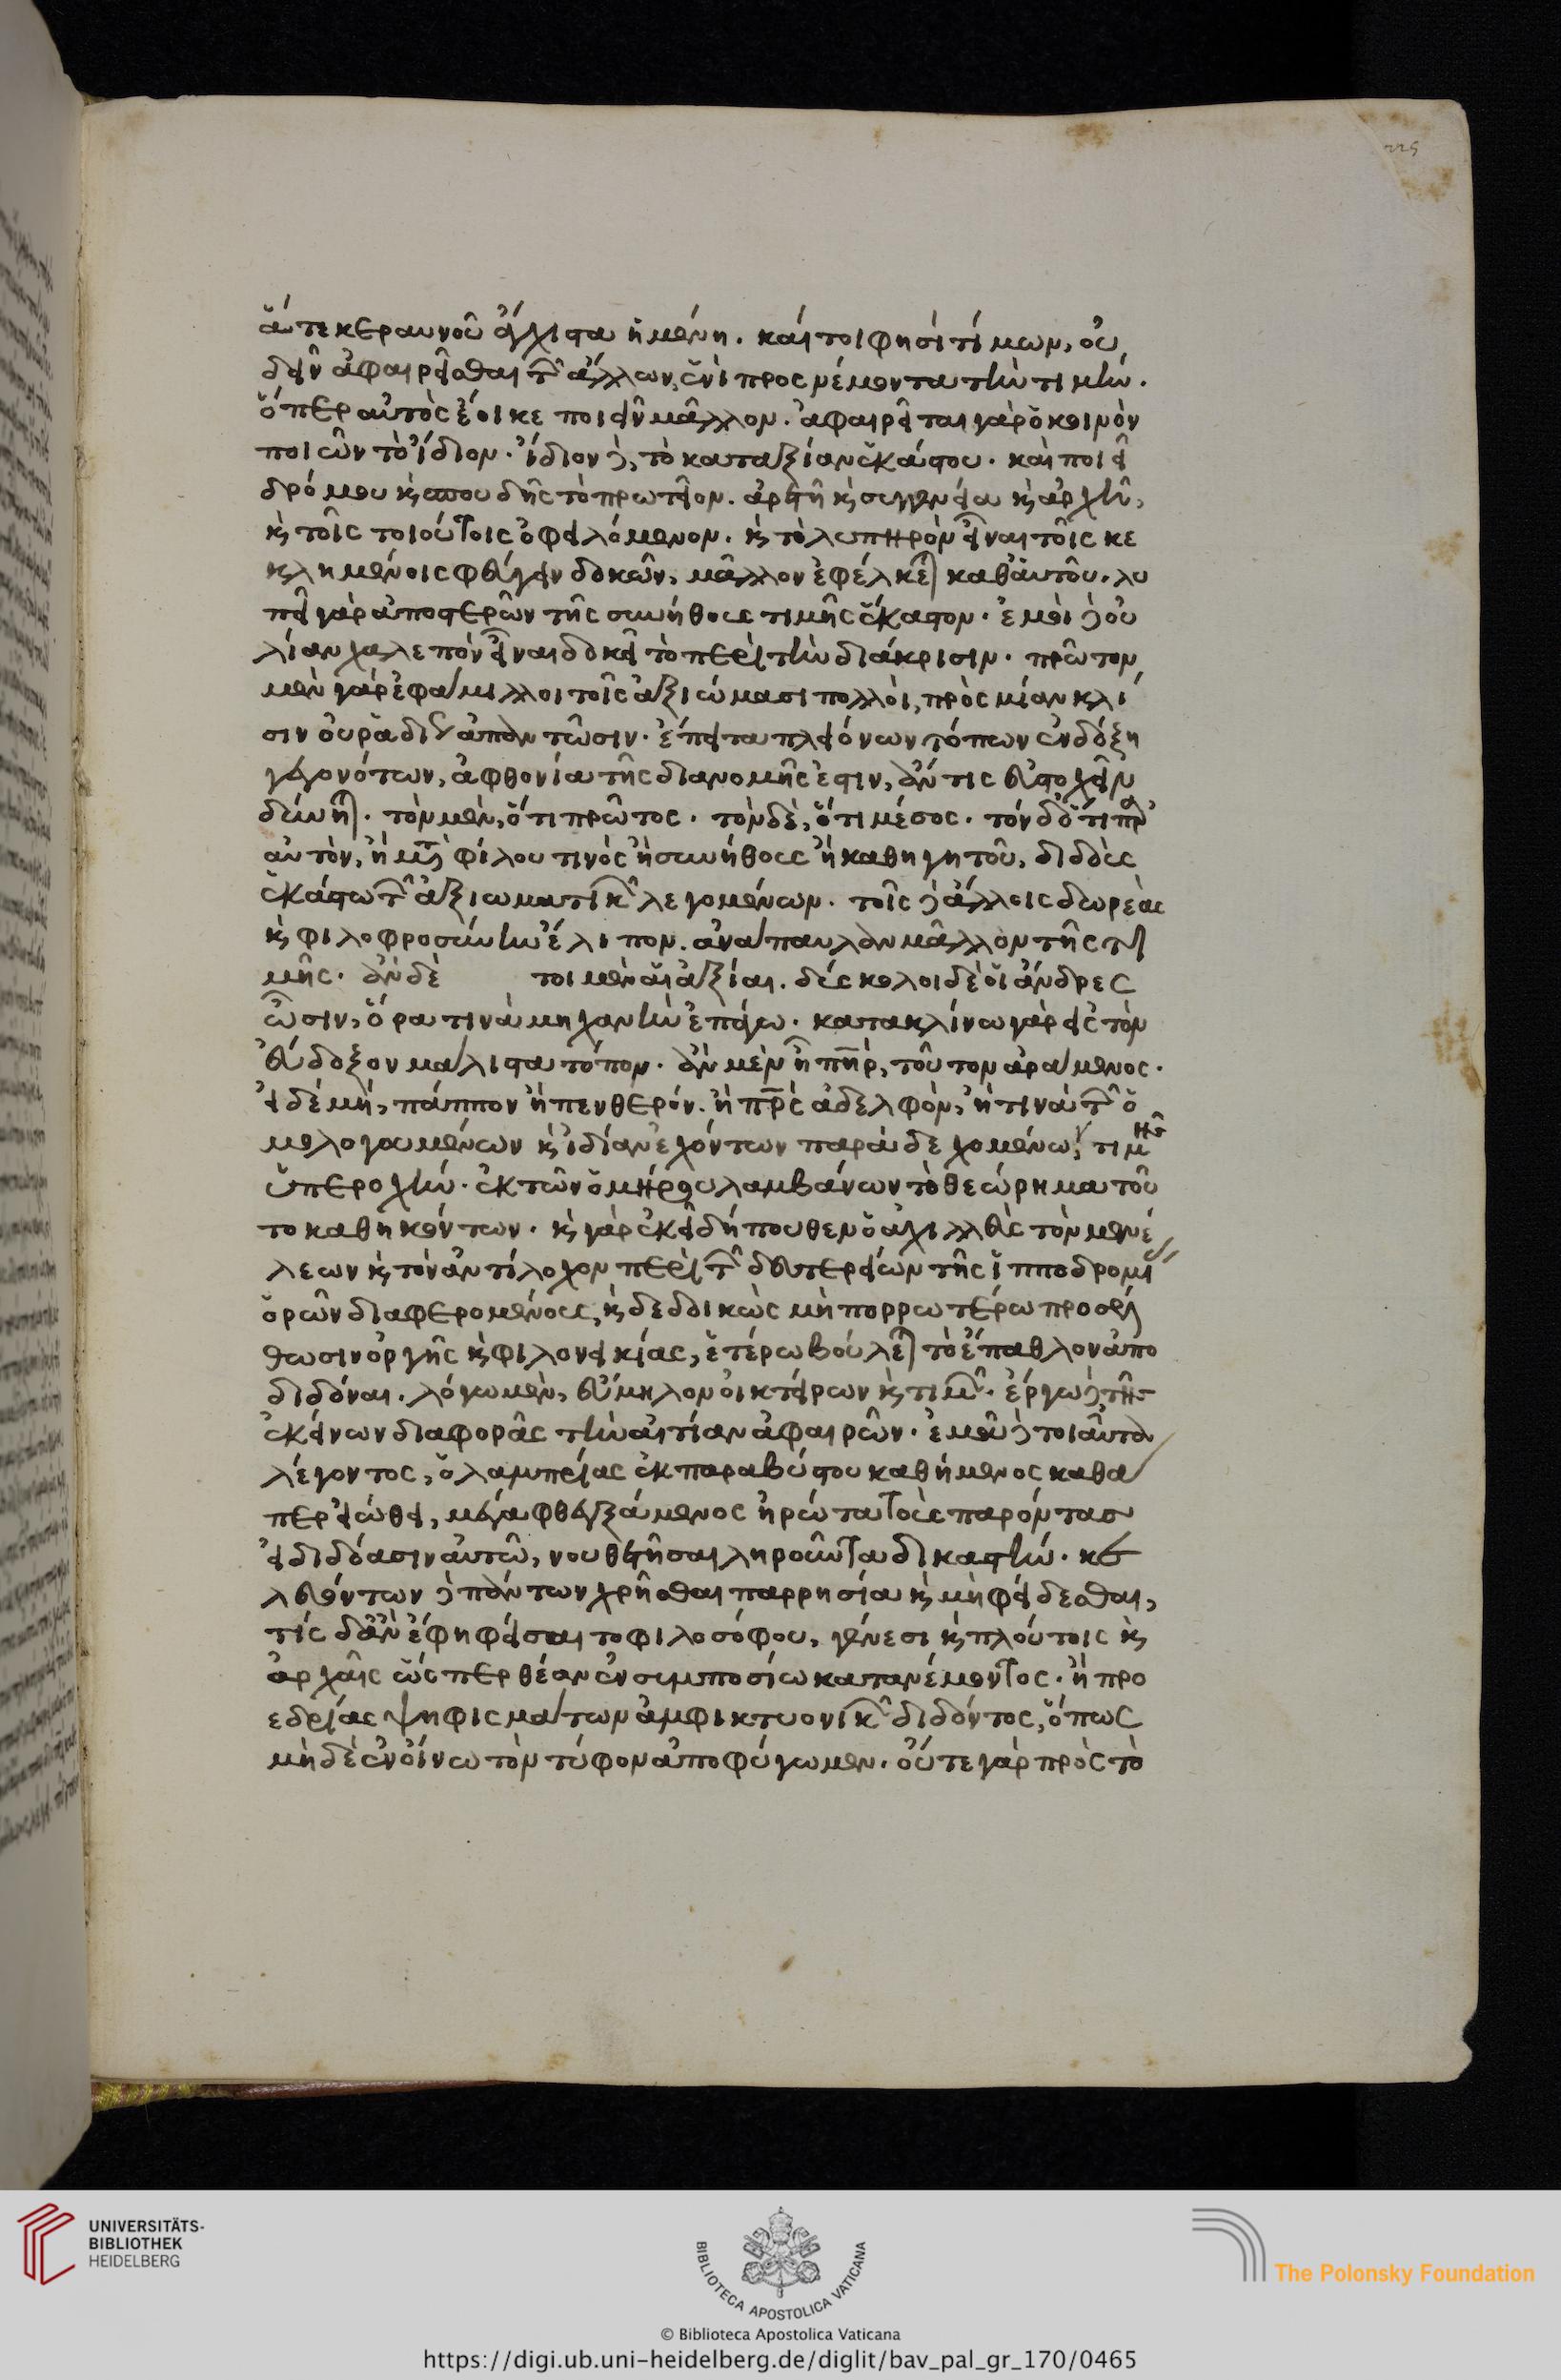 ἅτε κεραυνοῦ ἄγχιστα ἡμένη. καίτοι φησὶ τίμων, οὐ
δεῖν ἀφαιρεῖσθαι τῶν ἄλλων, ἑνὶ προσνέμοντα τὴν τιμήν.
ὅπερ αὐτὸς ἔοικε ποιεῖν μᾶλλον. ἀφαιρεῖται γὰρ ὁ κοινὸν
ποιῶν τὸ ἴδιον. ἴδιον δὲ, τὸ καταξίαν ἑκάστου. καὶ ποιεῖ
δρόμου καὶ σπουδῆς τὸ πρωτεῖον. ἀρετῇ καὶ συγγενεία καὶ ἀρχῇ,
καὶ τοῖς τοιούτοις ὀφειλόμενον. καὶ τὸ λυπηρὸν εἶναι τοῖς κε
κλημένοις φεύγειν δοκῶν, μᾶλλον ἐφέλκεται καθ' αὑτοῦ. λυ
πεῖ γὰρ ἀποστερῶν τῆς συνήθους τιμῆς ἕκαστον. ἐμοὶ δὲ οὐ
λίαν χαλεπὸν εἶναι δοκεῖ τὸ περὶ τὴν διάκρισιν. πρῶτον
μὲν γὰρ ἐφάμιλλοι τοῖς ἀξιώμασι πολλοὶ, πρὸς μίαν κλί
σιν οὐ ῥαδίως ἀπαντῶσιν. ἔπειτα πλειόνων τόπων ἐνδόξῃ
γεγονότων, ἀφθονία τῆς διανομῆς ἐστιν, ἄν τις εὐστοχεῖν
δύνηται. τὸν μὲν, ὅτι πρῶτος. τὸν δὲ, ὅτι μέσος. τὸν δ' ὅτι παρ'
αὐτὸν, ἢ μετὰ φίλου τινὸς ἢ συνήθους ἢ καθηγητοῦ, διδοὺς
ἑκάστω τῶν ἀξιωματικῶν λεγομένων. τοῖς δὲ ἄλλοις δωρεὰς
καὶ φιλοφροσύνην ἔλιπον. ἀνάπαυλαν μᾶλλον τῆς τι
μῆς. ἂν δὲ τοι μὲν αἱ ἀξίαι. δύσκολοι δὲ οἱ ἄνδρες
ὦσιν, ὅρα τινὰ μηχανὴν ἐπάγω. κατακλίνω γὰρ εἰς τὸν
ἔνδοξον μάλιστα τόπον. ἂν μὲν ᾖ πηρ, τοῦτον ἀράμενος.
εἰ δὲ μὴ, πάππον ἢ πενθερόν. ἢ πρς ἀδελφὸν, ἤ τινα τῶν ὁ
μολογουμένων καὶ ἰδίαν ἐχόντων παρὰ δεχομένω, τιμῆς
ὑπεροχήν. ἐκ τῶν ὁμήρου λαμβάνων τὸ θεώρημα τοῦ
το καθηκόντων. καὶ γὰρ ἐκεῖ δήπουθεν ὁ ἀχιλλεὺς τὸν μενέ
λεων καὶ τὸν ἀντίλοχον περὶ τῶν δευτερείων τῆς ἱπποδρομί
ὁρῶν διαφερομένους, καὶ δεδοικὼς μὴ πορρωτέρω προσέλ
θωσιν ὀργῆς καὶ φιλονεικίας, ἑτέρω βούλεται τὸ ἔπαθλον ἀπο
διδόναι. λόγω μὲν, εὔμηλον οἰκτείρων καὶ τιμῶν. ἔργω δὲ τῆς
ἐκείνων διαφορᾶς τὴν αἰτίαν ἀφαιρῶν. ἐμοῦ δὲ τοιαῦτα
λέγοντος, ὁ λαμπρίας ἐκ παραβύστου καθήμενος καθά
περ εἰώθει, μέγα φθεγξάμενος ἠρώτα τοὺς παρόντας
εἰ διδόασιν αὐτῶ, νουθετῆσαι ληροῦντα δικαστήν. κε
λευόντων δὲ πάντων χρῆσθαι παρρησία καὶ μὴ φείδεσθαι,
τίς δ' ἂν ἔφη φείσαιτο φιλοσόφου, γένεσι καὶ πλούτοις καὶ
ἀρχαῖς ὥσπερ θέαν ἐν συμποσίω κατανέμοντος. ἢ προ
εδρίας ψηφισμάτων ἀμφικτυονικῶν διδόντος, ὅπως
μηδὲ ἐν οἴνω τὸν τύφον ἀποφύγωμεν. οὔτε γὰρ πρὸς τὸ
UNIVERSITÄTS-
BIBLIOTHEK
HEIDELBERG
BIBLIOTECA APOSTOLICA VATICANA
The Polonsky Foundation
© Biblioteca Apostolica Vaticana
https://digi.ub.uni-heidelberg.de/diglit/bav_pal_gr_170/0465